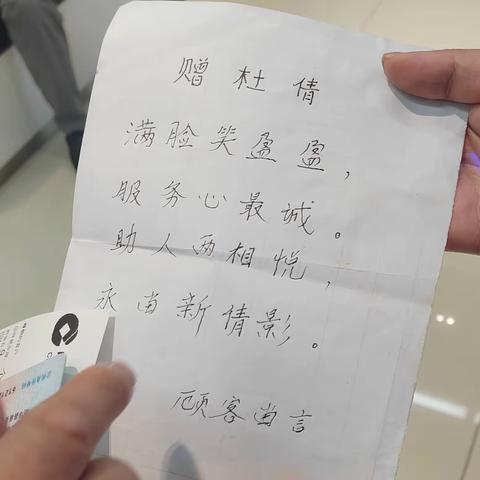 赠杜倩
满脸笑盈盈，
服务心最诚。
助人两相悦，
永留新倩影。
顾客留言